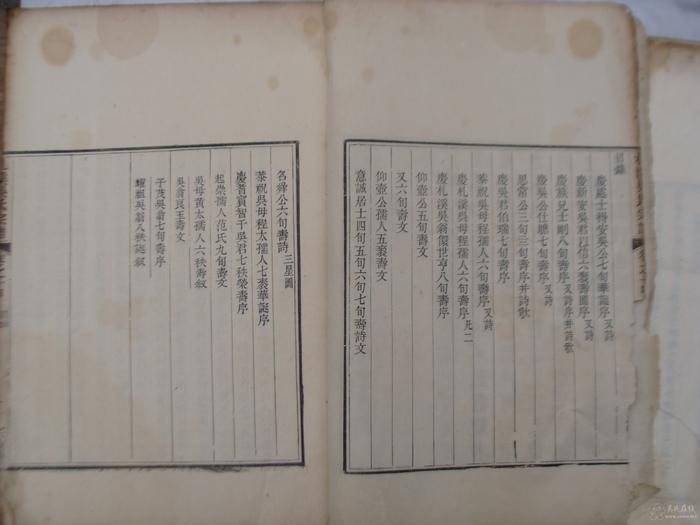 目錄
慶處士梅安吳公七旬華誕序又詩
慶新安吳君 六袠壽圖序又詩
慶族兄士剛八旬壽序又詩序并詩歌
慶公仕聰七旬壽序又詩
思常公三旬三旬壽序并詩歌
慶吳君伯瑞七旬壽序
恭祝吳母程孺人六旬壽序又詩
慶札溪吳母程孺人六旬壽序凡二
慶札溪吳翁傑世亨八旬壽序
仰壺公五旬壽文
又六旬壽文
仰壺公孺人五袠壽文
意誠居士四旬五旬六旬七旬壽詩文
名絳公六旬壽詩三星圖
恭祝吳母程太孺人七袠華誕序
慶耆賓智千吳君七秩榮壽序
起崇孺人范氏九旬壽文
吳母黃太孺人六秩壽叙
吳翁良玉壽文
子茂吳翁七旬壽序
耀祖吳翁八秩誕叙